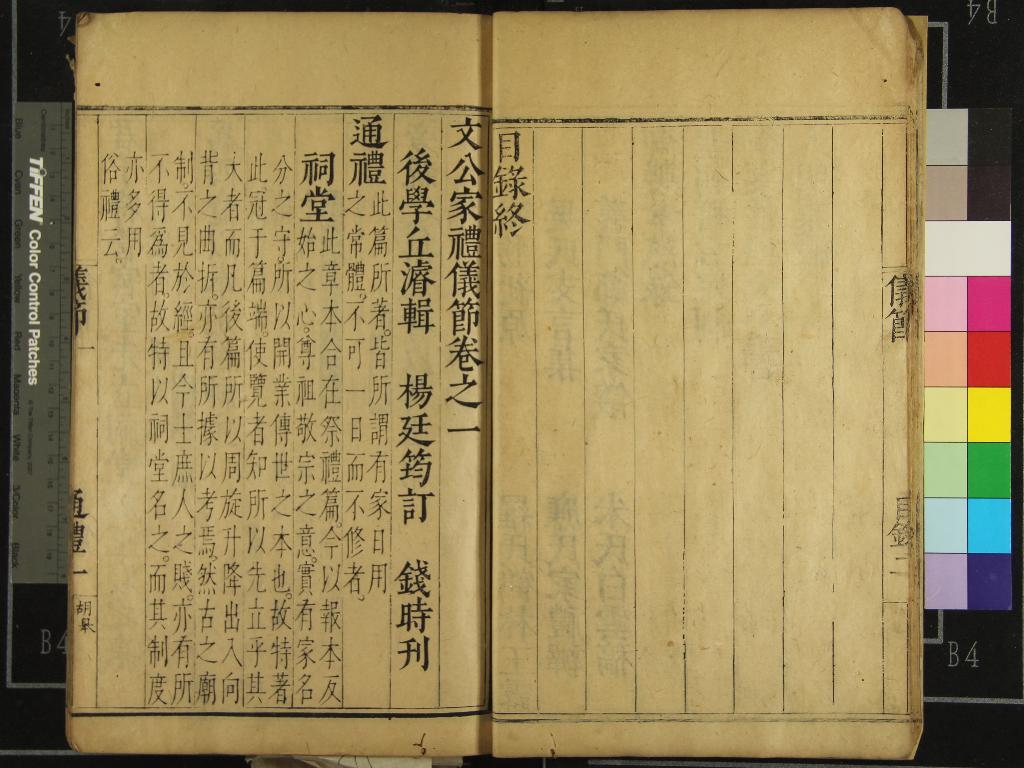 目錄終
儀節
目錄二
文公家禮儀節卷之一
後學丘濬輯 楊廷筠訂 錢時刊
通禮 此篇所著皆所謂有家日用
之常體。不可一日而不修者。
祠堂 此章本合在祭禮篇。今以報本反
始之心。尊祖敬宗之意。實有家名
分之守。所以開業傳世之本也。故特著
此冠于篇端使覽者知所以先立乎其
大者而凡後篇所以周旋升降出入向
背之曲折。亦有所據以考焉。然古之廟
制。不見於經。且今士庶人之賤。亦有所
不得爲者。故特以祠堂名之。而其制度
亦多用
俗禮云。
儀節一
通禮一
B4
B4
B4
TIFFEN Color Control Patches
Blue Cyan Green Yellow Red Magenta White 3/Color Black